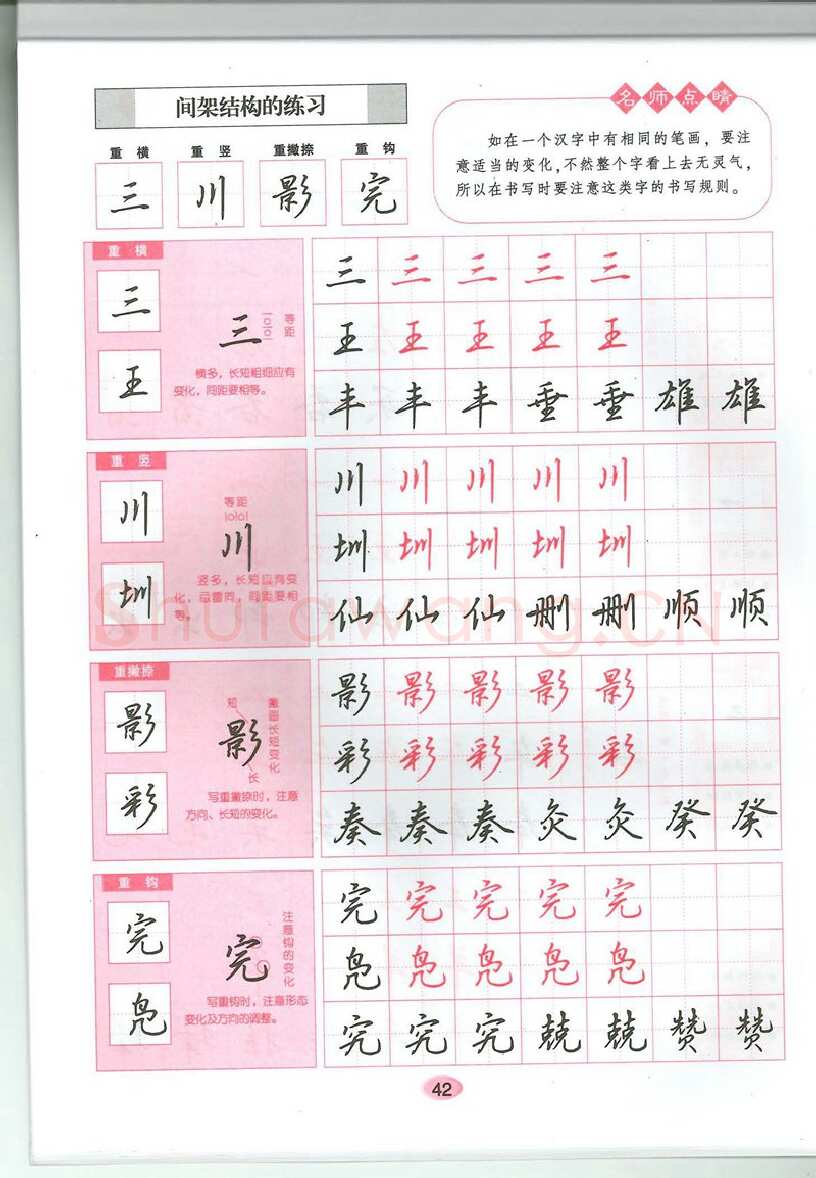 间架结构的练习
名师点睛
如在一个汉字中有相同的笔画，要注
意适当的变化，不然整个字看上去无灵气，
所以在书写时要注意这类字的书写规则。
重横 重竖 重撇捺 重钩
三 川 影 完
重横
三
王
三
等距
横多，长短粗细应有
变化，间距要相等。
三 三 三 三 三
王 王 王 王 王
丰 丰 丰 垂 垂 雄 雄
重竖
川
圳
等距
川
竖多，长短应有变
间距要相
等。
川 川 川 川 川
圳 圳 圳 圳 圳
仙 仙 仙 删 删 顺 顺
Shufawang.CN
重撇捺
影
彩
短
影
长
撇画长短变化
写重撇捺时，注意
方向、长短的变化。
影 影 影 影 影
彩 彩 彩 彩 彩
奏 奏 奏 灸 灸 癸 癸
重钩
完
凫
完
注意钩的变化
写重钩时，注意形态
变化及方向的调整。
完 完 完 完 完
凫 凫 凫 凫 凫
究 究 究 兢 兢 赞 赞
42